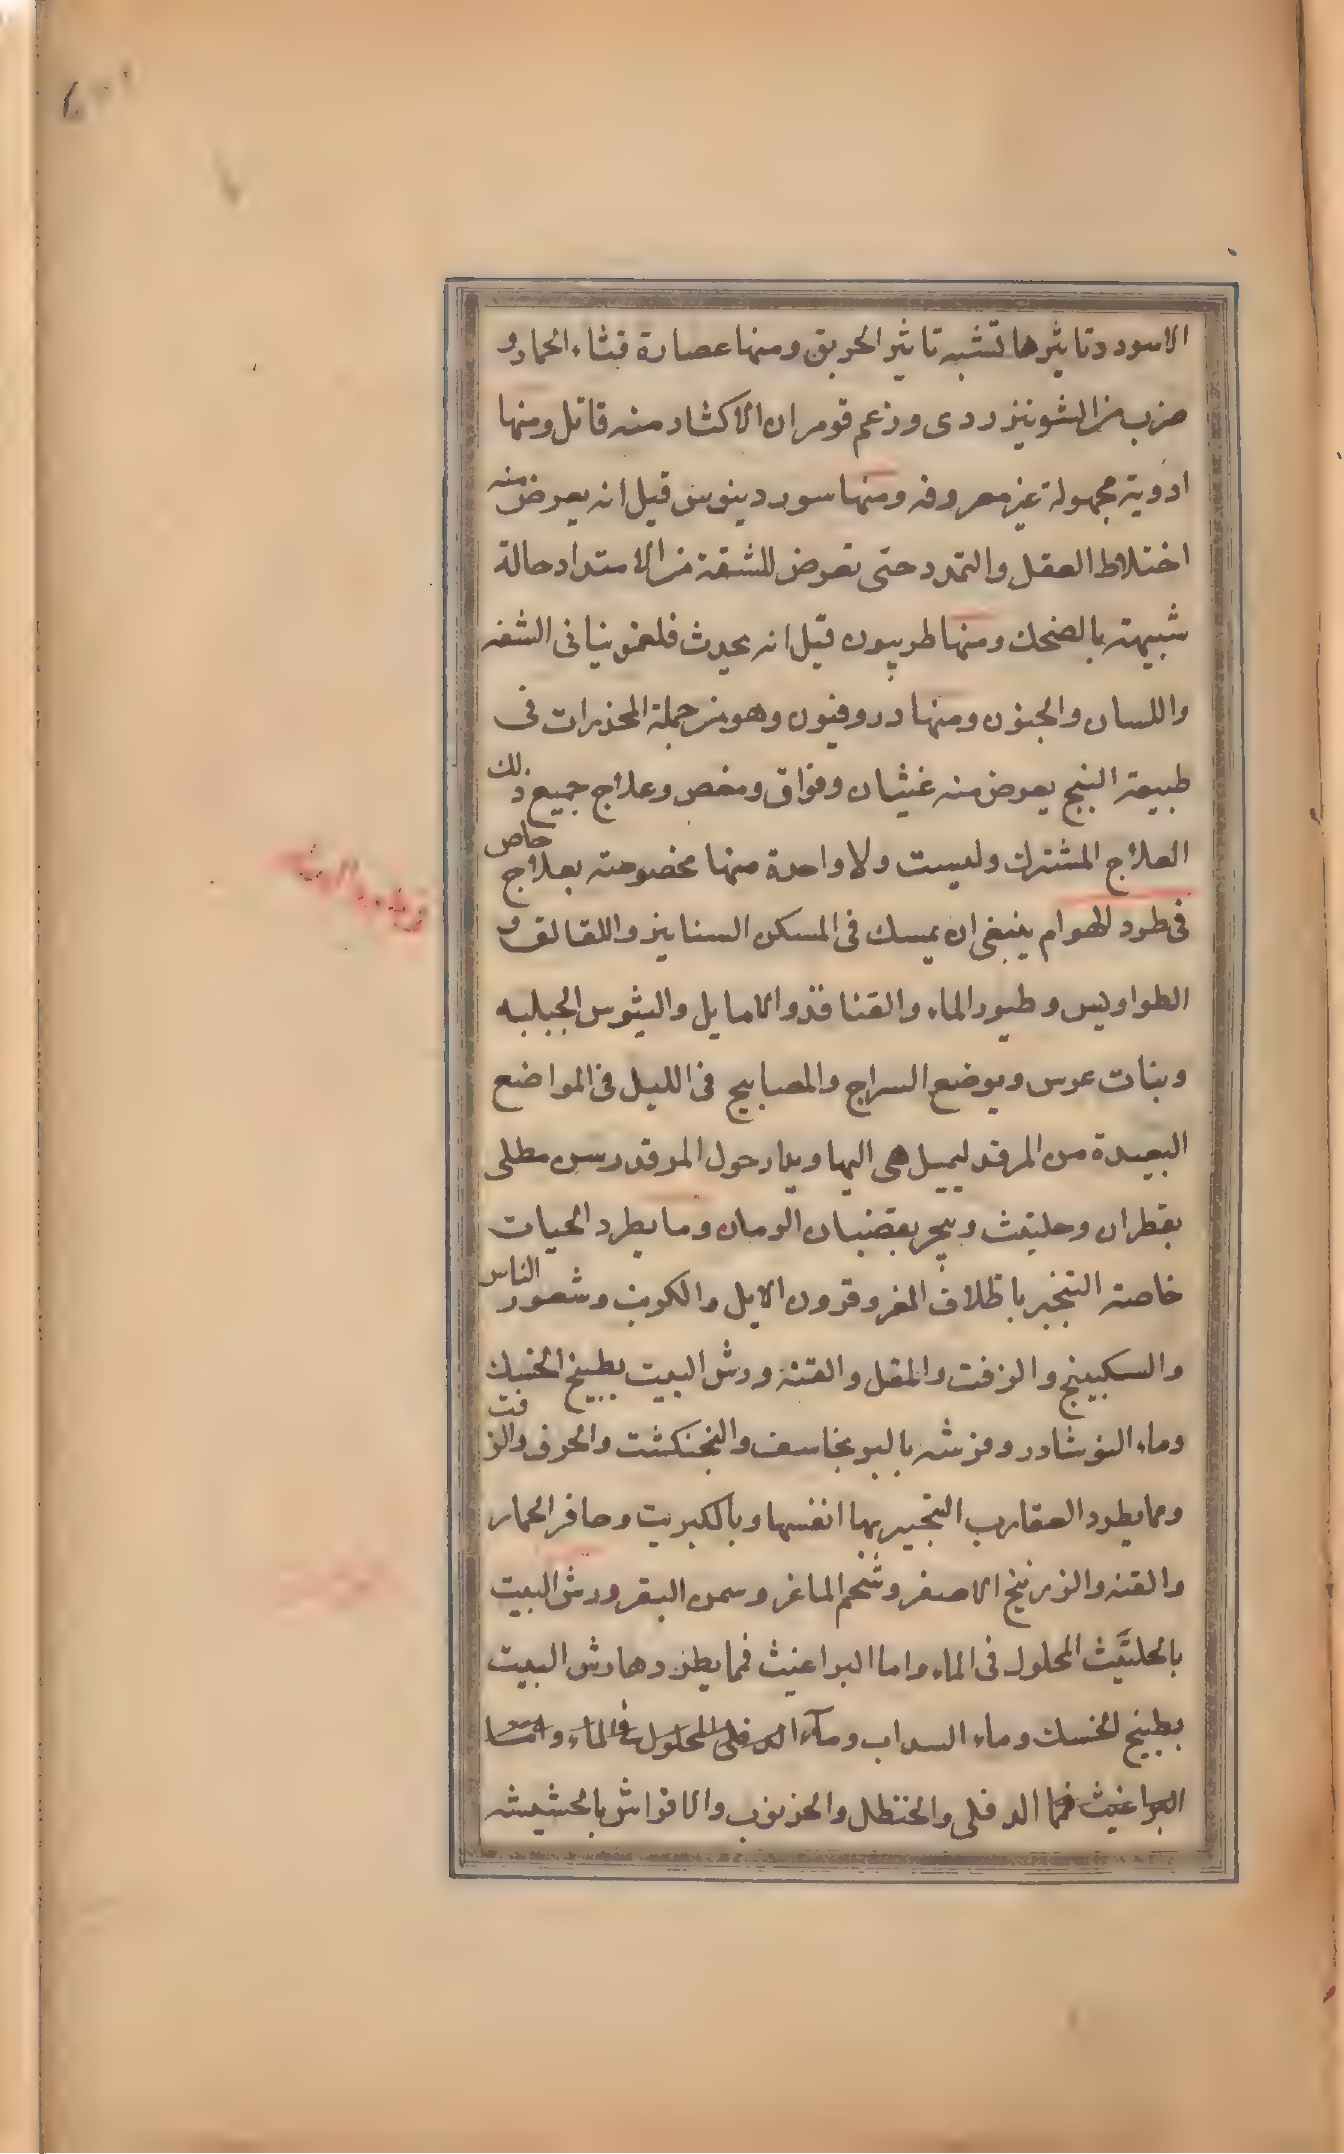 الاسود وتاثيرها تشبه تاثير الخربق ومنها عصارة قثاء الحمار و
ضرب من الشونيز ردى وزعم قوم ان الاكثار منه قاتل ومنها
ادوية مجهولة غير معروفه ومنها سوردينوس قيل انه يعرض منه
اختلاط العقل والتمدد حتى تعرض للشفة من الامتداد حالة
شبيهة بالضحك ومنها طربيون قيل انه يحدث فلغمونيا فى الشفه
واللسان والجنون ومنها دروفنون وهو من جملة المخدرات فى
طبيعة البنج يعرض منه غثيان وفواق ومغص وعلاج جميع ذلك
العلاج المشترك وليست ولا واحدة منها مخصوصة بعلاج خاص
فى طرد الهوام ينبغى ان يمسك فى المسكن السنانيز واللقالق و
الطواويس وطيور الماء والقنافذ والامايل والتيوس الجبليه
وبنات عرس ويوضع السراج والمصابيح فى الليل فى المواضع
البعيدة من المرقد ليميل هى اليها ويدار حول المرقد رسن مطلى
بقطران وحلتيث ويبخر بقضبان الرمان وما يطرد الحيات
خاصة التبخير باظلاف المعز وقرون الايل والكوبت وشعور الناس
والسكبينج والزفت والمقل والقنه ورش البيت بطبيخ الخسك
وماء النوشادر وفرشه بالبوبخاسف والبنجنكشت والحرف والزفت
ومما يطرد العقارب التبخير بها انفسها وبالكبريت وحافر الحمار
والقنه والزرنيخ الاصفر وشحم الماعز وسمن البقر ورش البيت
بالحلتيث المحلول فى الماء واما البراغيث فما يطردها رش البيت
بطبيخ الخسك وماء السداب وماء الدفلى المحلول فى الماء واما
البراغيث فما الدفلى والحنظل والخرنوب والافراش بالحشيشه